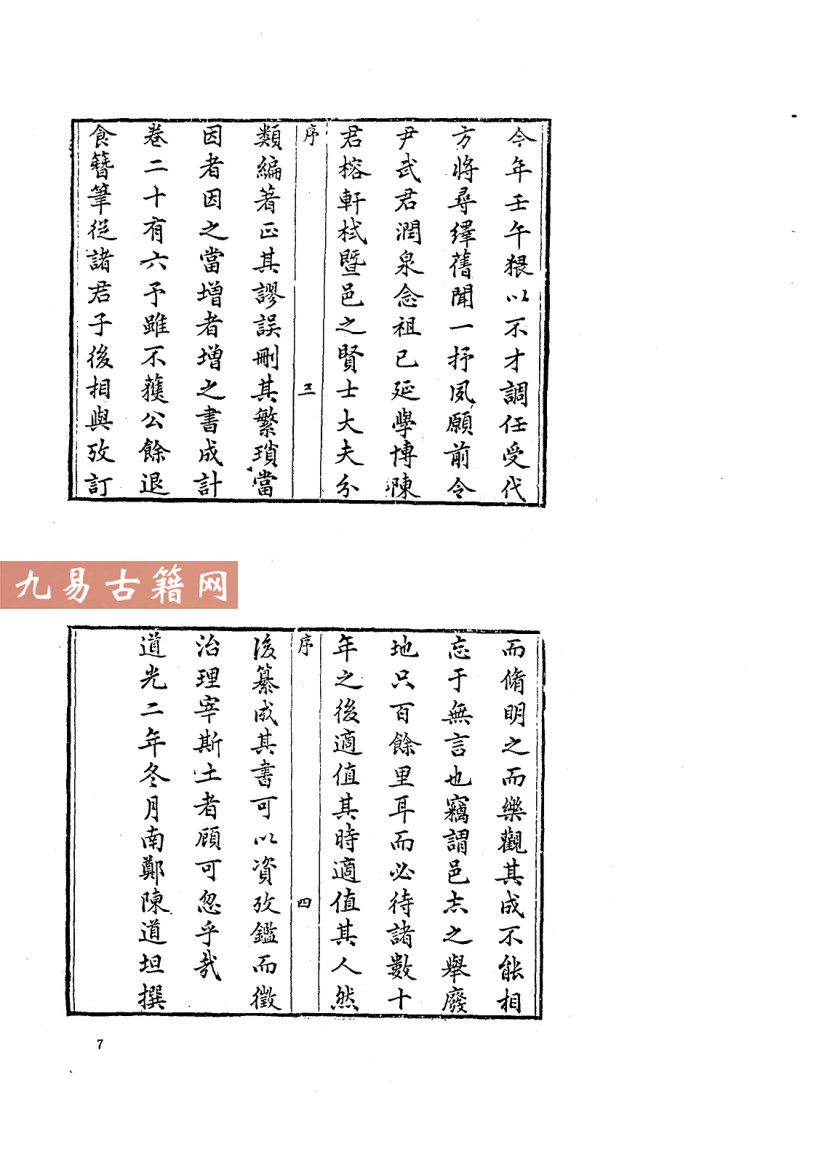 今年壬午猥以不才調任受代
方將尋繹舊聞一抒夙願前令
尹武君潤泉念祖已延學博陳
君榕軒栻暨邑之賢士大夫分
序 三
類編著正其謬誤刪其繁瑣當
因者因之當增者增之書成計
卷二十有六予雖不獲公餘退
食簪筆從諸君子後相與攷訂
九易古籍网
而脩明之而樂觀其成不能相
忘于無言也竊謂邑志之舉廢
地只百餘里耳而必待諸數十
年之後適值其時適值其人然
序 四
後纂成其書可以資攷鑑而徵
治理宰斯土者顧可忽乎哉
道光二年冬月南鄭陳道坦撰
7